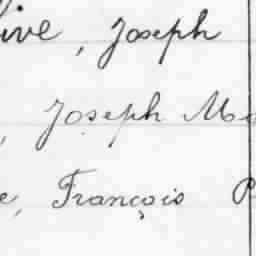 live, Joseph
, Joseph Ma
e, François P